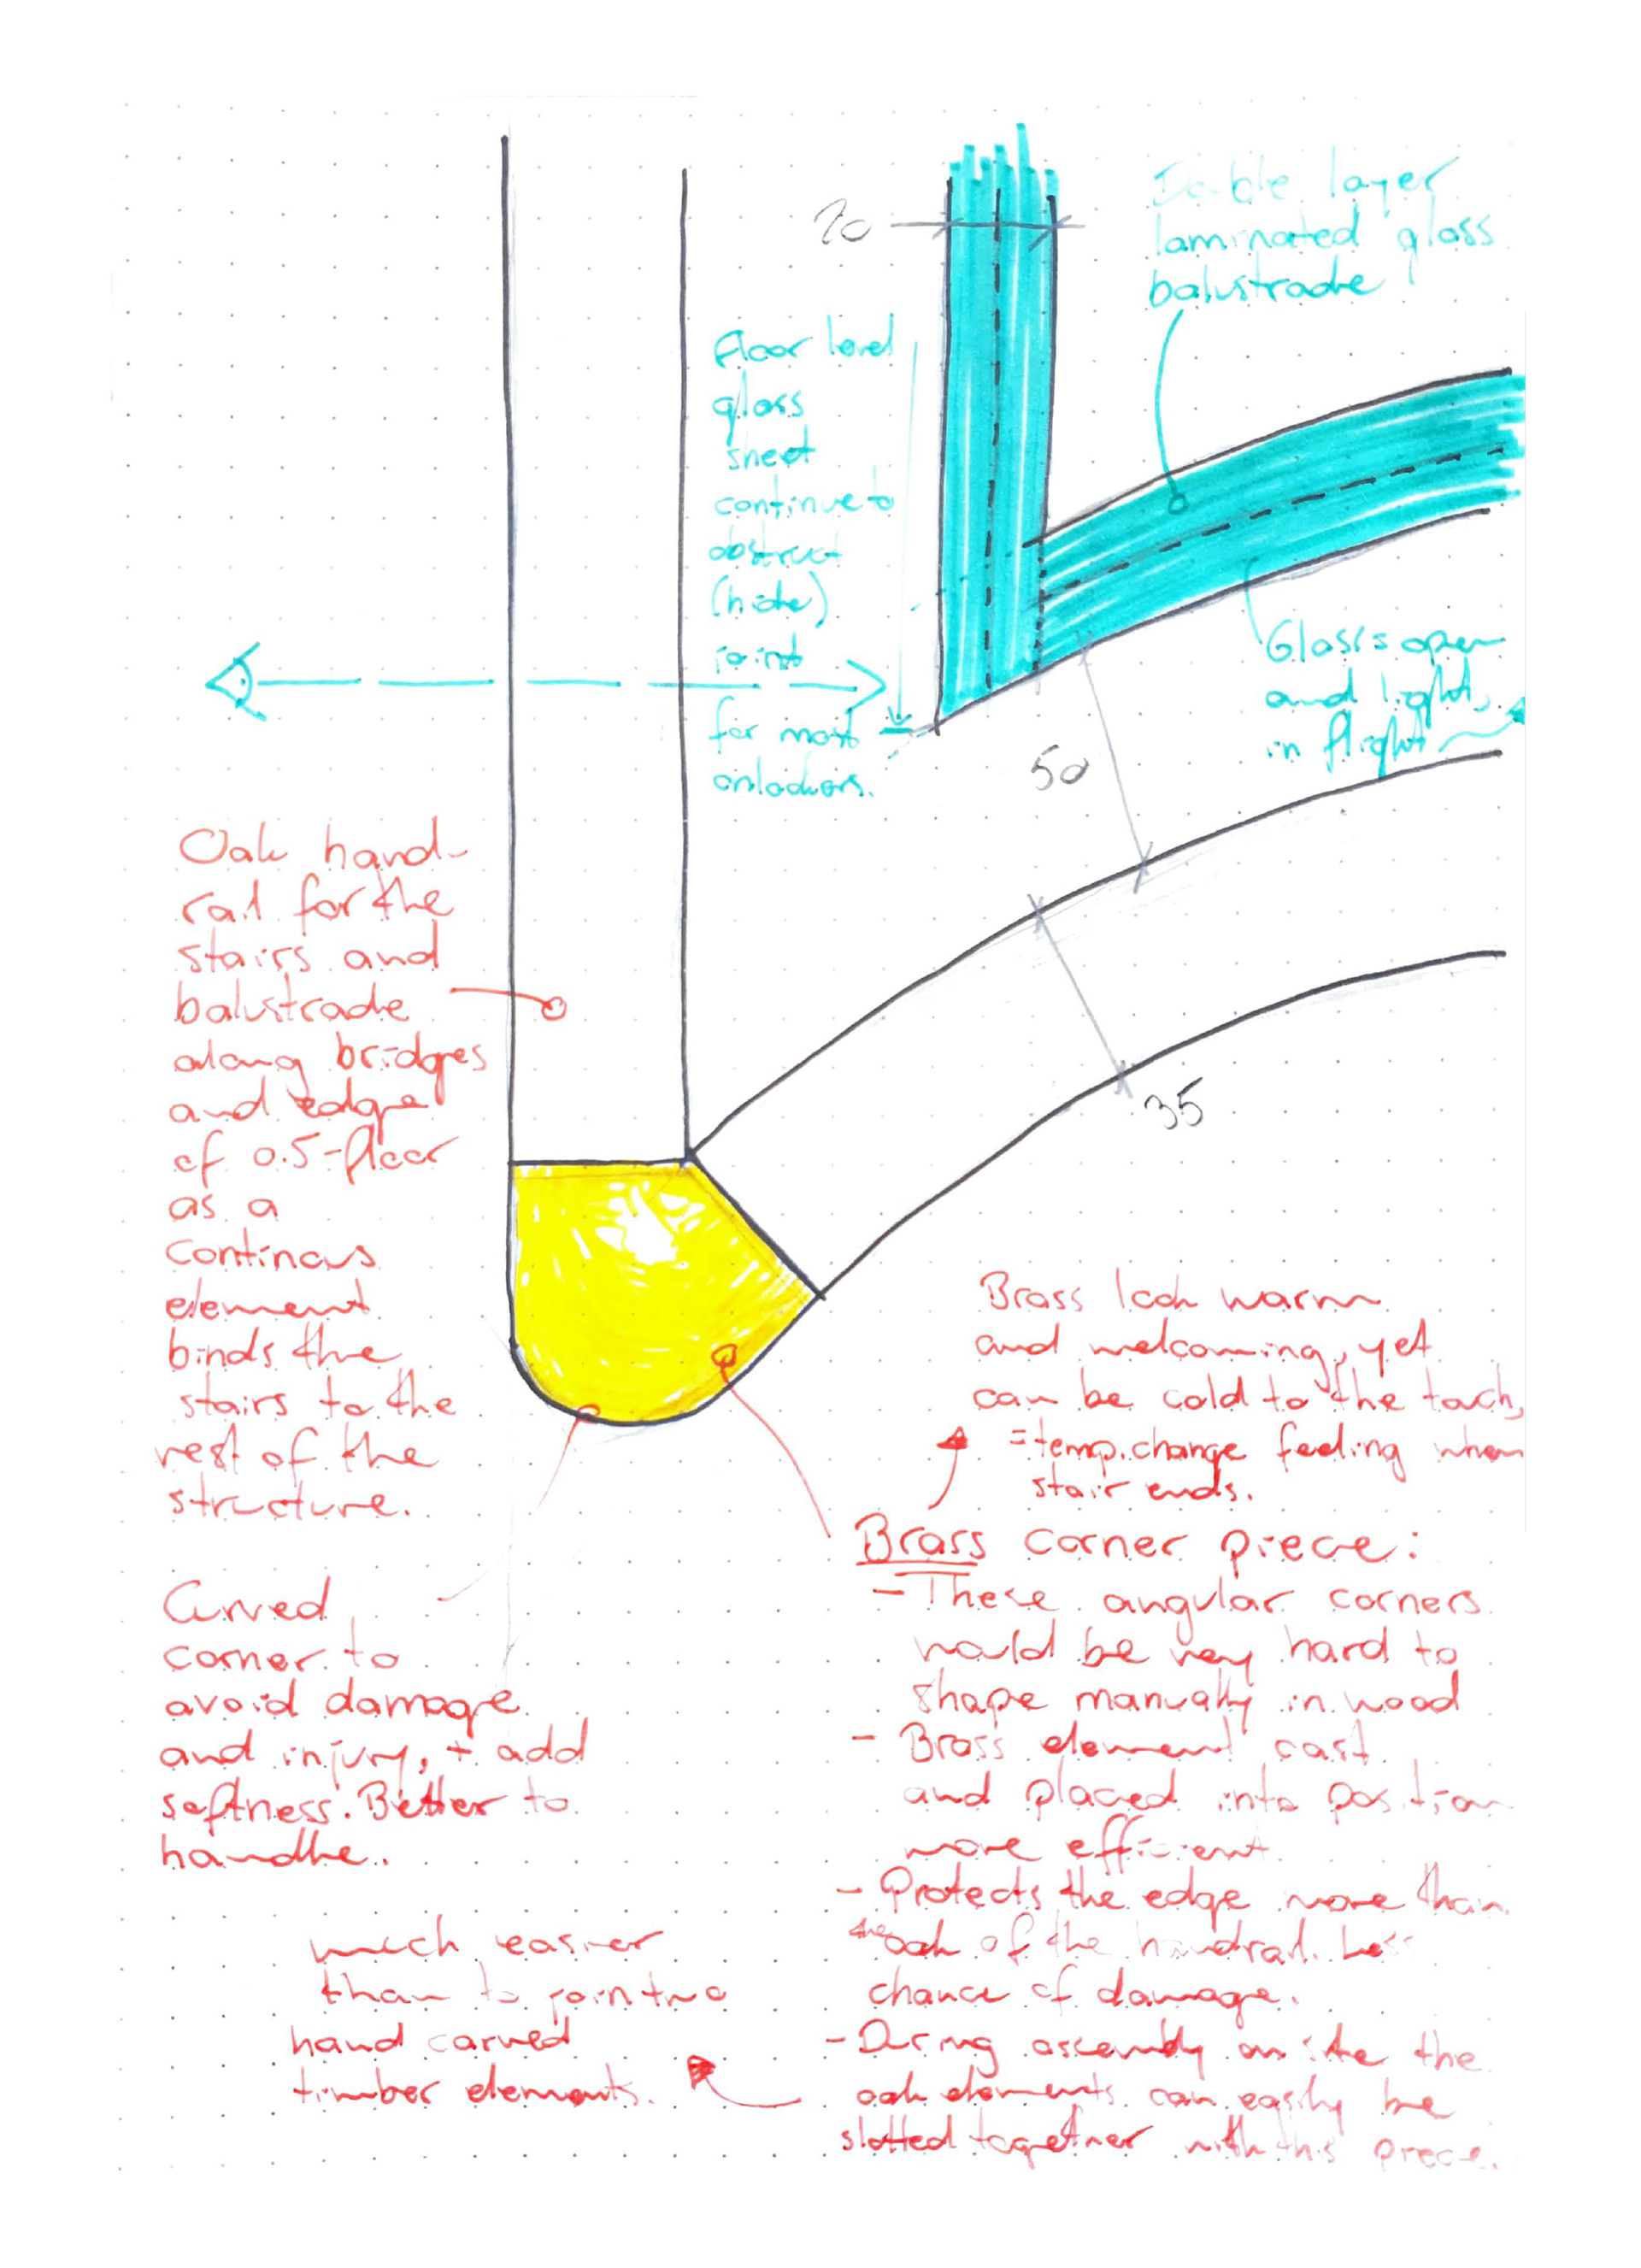 20
Double layer
laminated glass
balustrade
floor level
glass
sheet
continue to
obstruct
(hide)
joint
for most
onlookers.
Glass = open
and light,
in flight
50
35
Oak hand-
rail for the
stairs and
balustrade
along bridges
and edge
of 0.5-floor
as a
continous
element
binds the
stairs to the
rest of the
structure.
Brass look warm
and welcoming, yet
can be cold to the touch,
= temp. change feeling when
stair ends.
Brass corner piece:
- These angular corners
would be very hard to
shape manually in wood
- Brass element cast
and placed into position
more efficient
- Protects the edge more than
the oak of the handrail. Less
chance of damage.
- During assembly on site the
oak elements can easily be
slotted together with this piece.
Curved
corner to
avoid damage
and injury, + add
softness. Better to
handle.
much easier
than to join two
hand carved
timber elements.